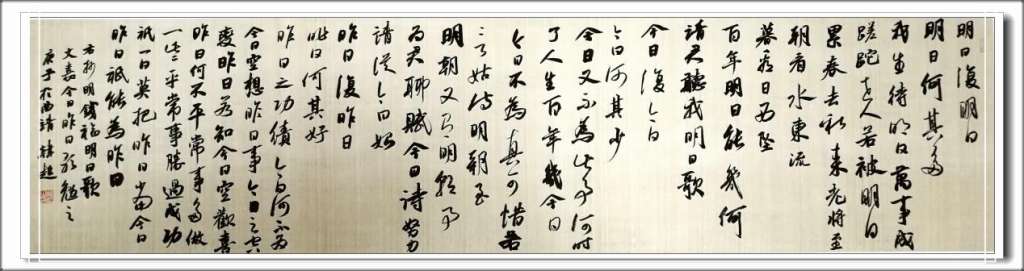 明日復明日
明日何其多
我生待明日萬事成
蹉跎世人若被明日
累春去秋来老將至
朝看水東流
暮看日西墜
百年明日能幾何
請君聽我明日歌
今日復今日
今日何其少
今日又不為此事何時
了人生百年幾今日
今日不為真可惜若
言姑待明朝至
明朝又有明朝事
為君聊賦今日詩努力
請從今日始
昨日復昨日
昨日何其好
昨日之功績今日何不為
今日空想昨日事今日之
變昨日若知今日空歡喜
昨日何不平常事多做
一些平常事勝過成功
祇一日莫把昨日當今日
昨日祇能為昨日
右抄明錢福明日歌
文嘉今日昨日歌勉之
庚子於曲靖